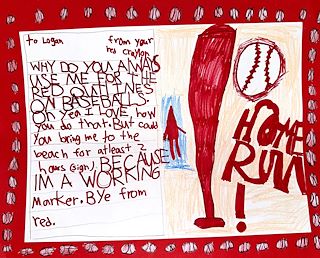 to Logan from your
red crayton
WHY DO YOU ALWAYS
USE ME FOR THE
RED OUTLINES
ON BASEBALLS.
Or yea I LOVE how
you do that. But could
You bring me to the
beach for atleast 2
hours (sigh), BECAUSE
IM A WORKING
Marker. Bye from
red.
HOME
RUN
!